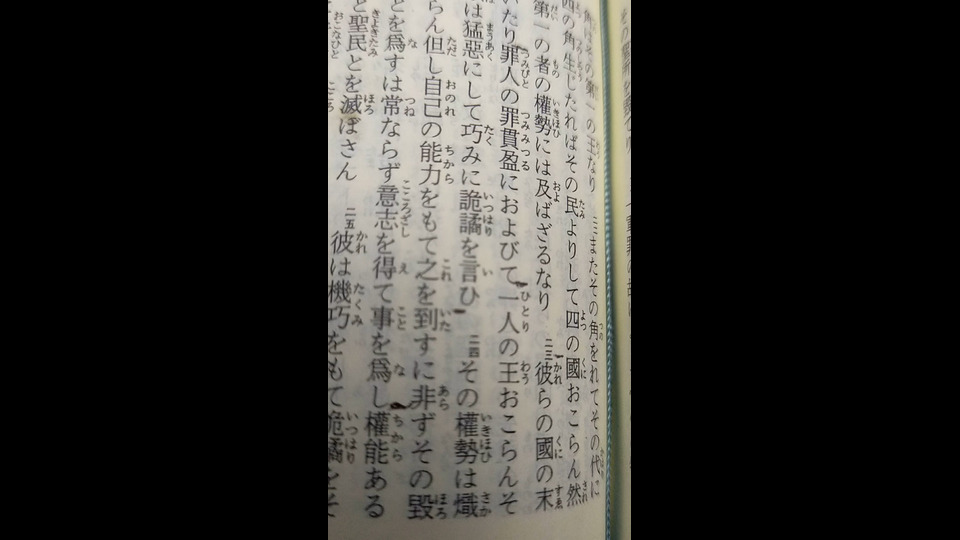 角はその第一の王なり 二二またその角をれてその代に
四の角生じたればその民よりして四の國おこらん然
第一の者の權勢には及ばざるなり 二三彼らの國の末
いたり罪人の罪貫盈におよびて一人の王おこらんそ
は猛惡にして巧みに詭譎を言ひ 二四その權勢は熾
らん但し自己の能力をもて之を到すに非ずその毀
とを爲すは常ならず意志を得て事を爲し權能ある
と聖民とを滅ぼさん 二五彼は機巧をもて詭譎をそ